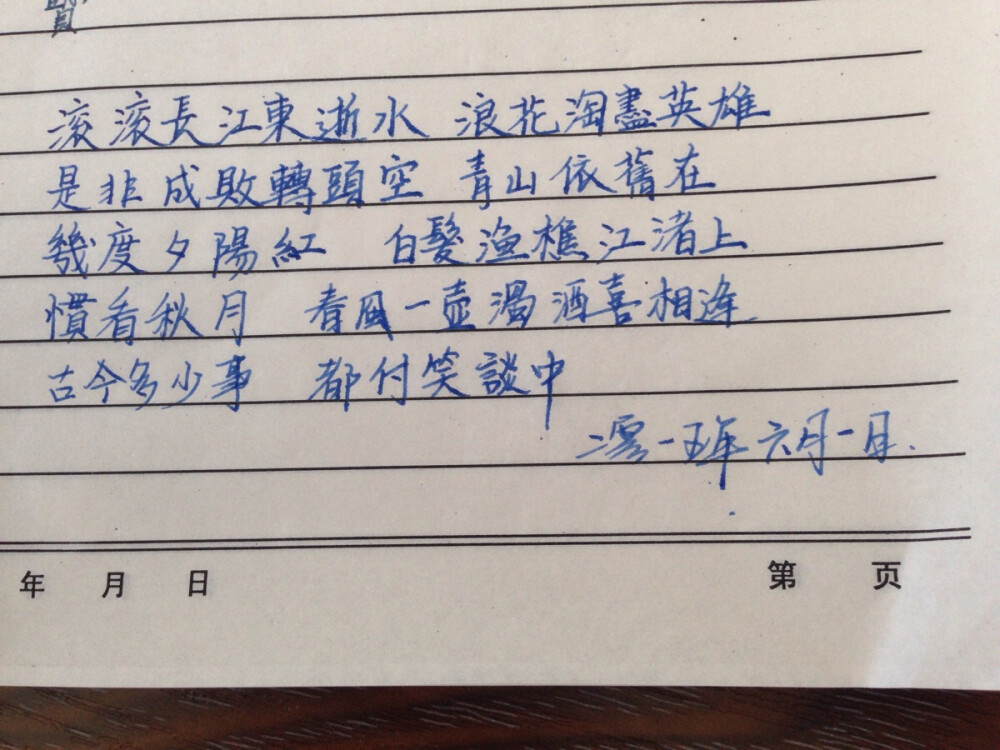 滚滚長江東逝水 浪花淘盡英雄
是非成敗轉頭空 青山依舊在
幾度夕陽紅 白髮漁樵江渚上
慣看秋月 春風一壺濁酒喜相逢
古今多少事 都付笑談中
二零一五年六月一日.
年 月 日 第 页